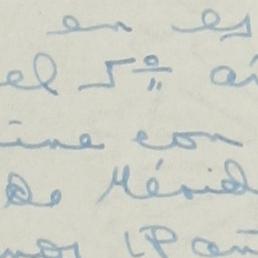 en es
el 5º a
ine con
de Mérid